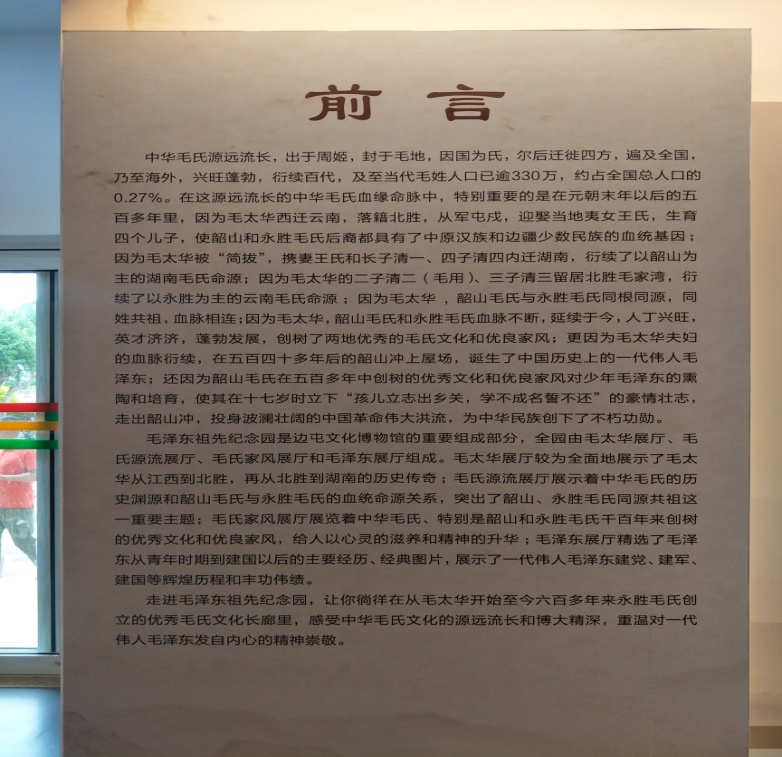 前言
中华毛氏源远流长，出于周姬，封于毛地，因国为氏，尔后迁徙四方，遍及全国，
乃至海外，兴旺蓬勃，衍续百代，及至当代毛姓人口已逾330万，约占全国总人口的
0.27%。在这源远流长的中华毛氏血缘命脉中，特别重要的是在元朝末年以后的五
百多年里，因为毛太华西迁云南，落籍北胜，从军屯戍，迎娶当地夷女王氏，生育
四个儿子，使韶山和永胜毛氏后裔都具有了中原汉族和边疆少数民族的血统基因；
因为毛太华被“简拔”，携妻王氏和长子清一、四子清四内迁湖南，衍续了以韶山为
主的湖南毛氏命源；因为毛太华的二子清二（毛用）、三子清三留居北胜毛家湾，衍
续了以永胜为主的云南毛氏命源；因为毛太华，韶山毛氏与永胜毛氏同根同源，同
姓共祖，血脉相连；因为毛太华，韶山毛氏和永胜毛氏血脉不断，延续于今，人丁兴旺，
英才济济，蓬勃发展，创树了两地优秀的毛氏文化和优良家风；更因为毛太华夫妇
的血脉衍续，在五百四十多年后的韶山冲上屋场，诞生了中国历史上的一代伟人毛
泽东；还因为韶山毛氏在五百多年中创树的优秀文化和优良家风对少年毛泽东的熏
陶和培育，使其在十七岁时立下“孩儿立志出乡关，学不成名誓不还”的豪情壮志，
走出韶山冲，投身波澜壮阔的中国革命伟大洪流，为中华民族创下了不朽功勋。
毛泽东祖先纪念园是边屯文化博物馆的重要组成部分，全园由毛太华展厅、毛
氏源流展厅、毛氏家风展厅和毛泽东展厅组成。毛太华展厅较为全面地展示了毛太
华从江西到北胜，再从北胜到湖南的历史传奇；毛氏源流展厅展示着中华毛氏的历
史渊源和韶山毛氏与永胜毛氏的血统命源关系，突出了韶山、永胜毛氏同源共祖这
一重要主题；毛氏家风展厅展览着中华毛氏、特别是韶山和永胜毛氏千百年来创树
的优秀文化和优良家风，给人以心灵的滋养和精神的升华；毛泽东展厅精选了毛泽
东从青年时期到建国以后的主要经历、经典图片，展示了一代伟人毛泽东建党、建军、
建国等辉煌历程和丰功伟绩。
走进毛泽东祖先纪念园，让你徜徉在从毛太华开始至今六百多年来永胜毛氏创
立的优秀毛氏文化长廊里，感受中华毛氏文化的源远流长和博大精深，重温对一代
伟人毛泽东发自内心的精神崇敬。